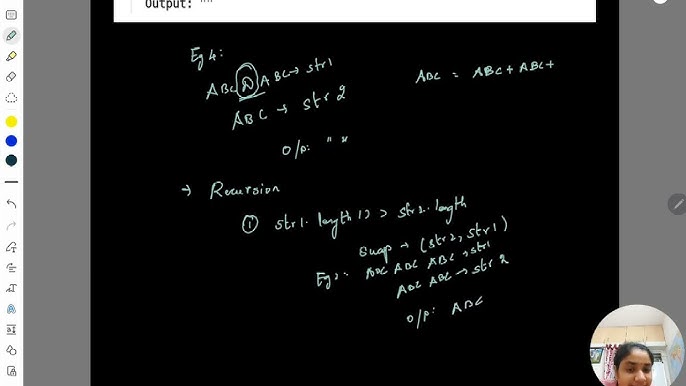 Output: ""
Eg 4:
ABC D ABC → str1
ABC → str2
O/p: " "
ABC = ABC + ABC +
→ Recursion
① str1.length() > str2.length
swap → (str2, str1)
Eg 2: ABC ABC ABC → str1
ABC ABC → str2
O/p: ABC